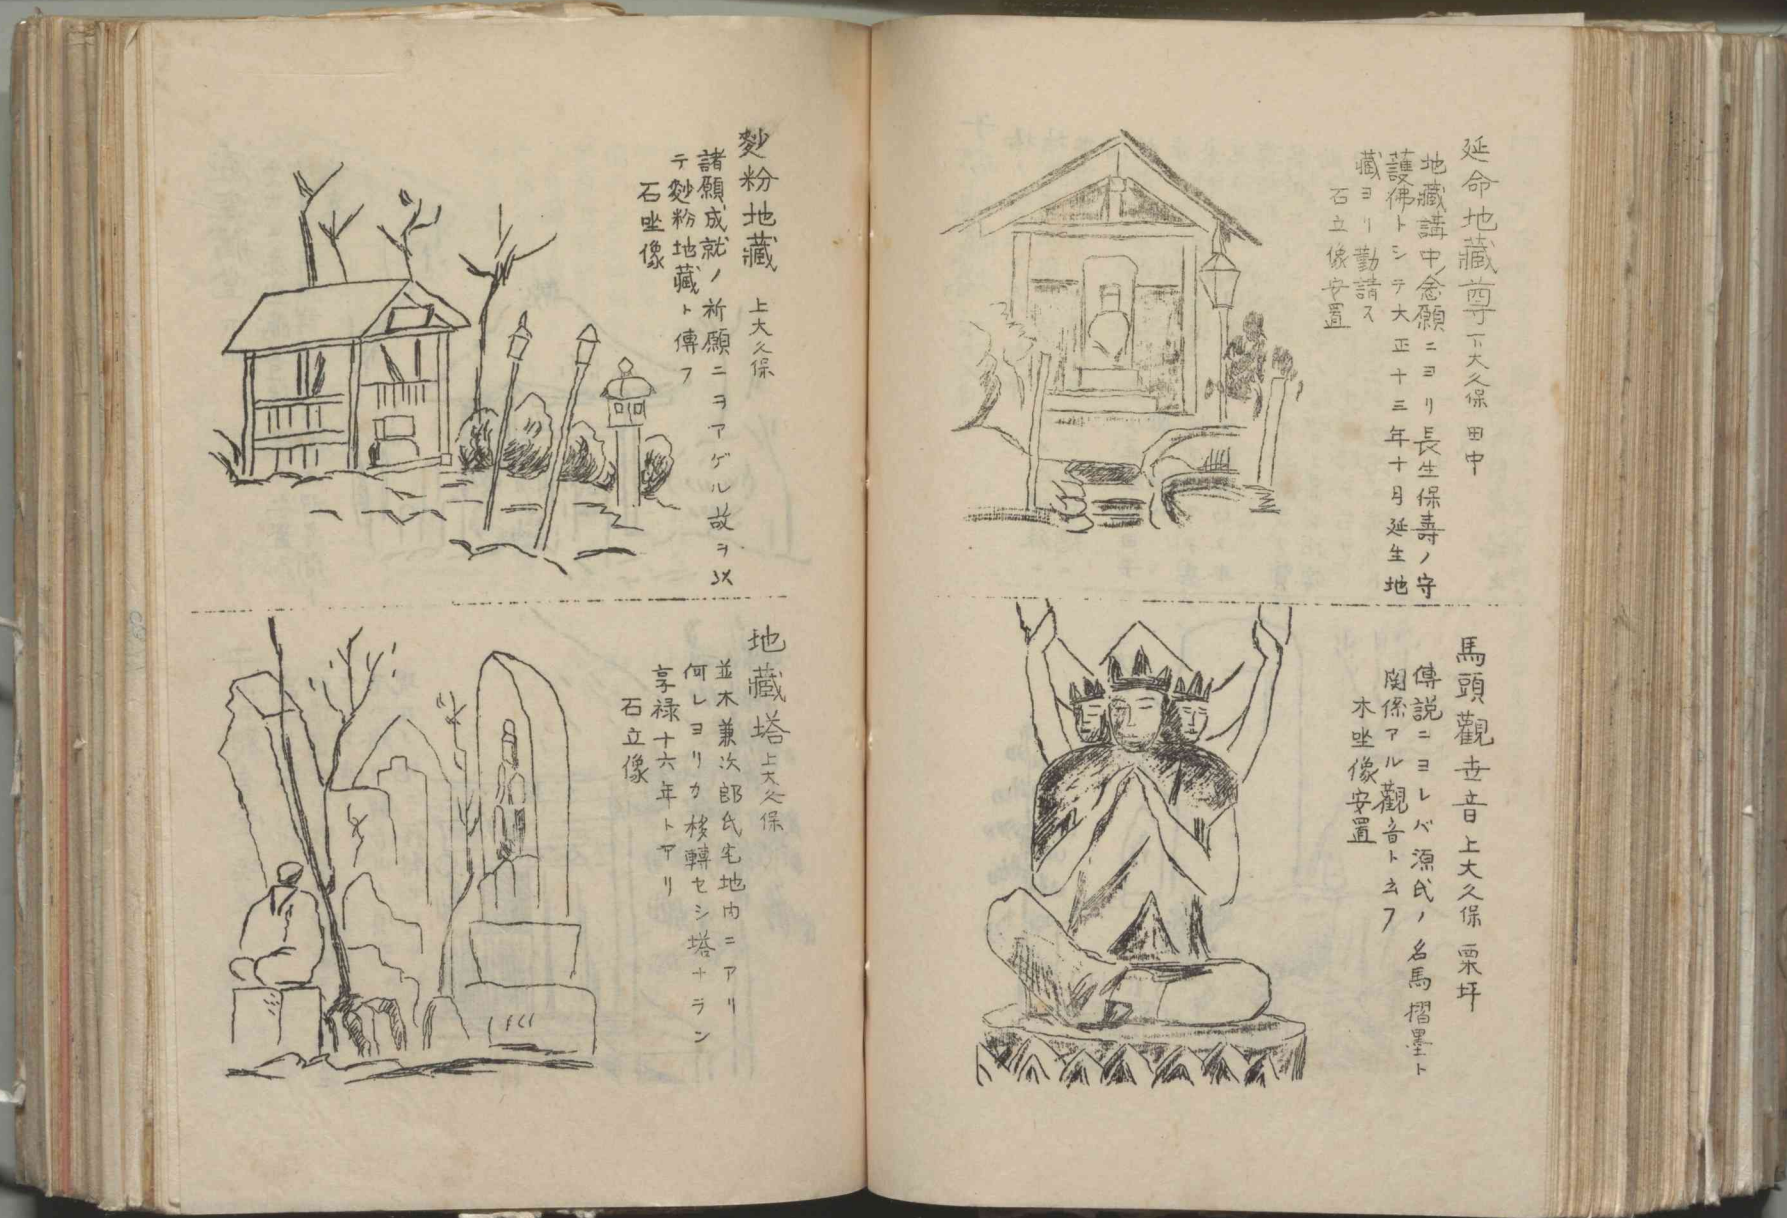 延命地藏尊 下大久保 田中
地藏講中念願ニヨリ長生保壽ノ守
護佛トシテ大正十三年十月延生地
藏ヨリ勸請ス
石立像安置
馬頭觀世音 上大久保 栗坪
傳説ニヨレバ源氏ノ名馬摺墨ト
関係アル觀音ト云フ
木坐像安置
麨粉地藏 上大久保
諸願成就ノ祈願ニヲアゲル故ヲ以
テ麨粉地藏ト傳フ
石坐像
地藏塔 上大久保
並木兼次郎氏宅地内ニアリ
何レヨリカ移轉セシ塔ナラン
享禄十六年トアリ
石立像